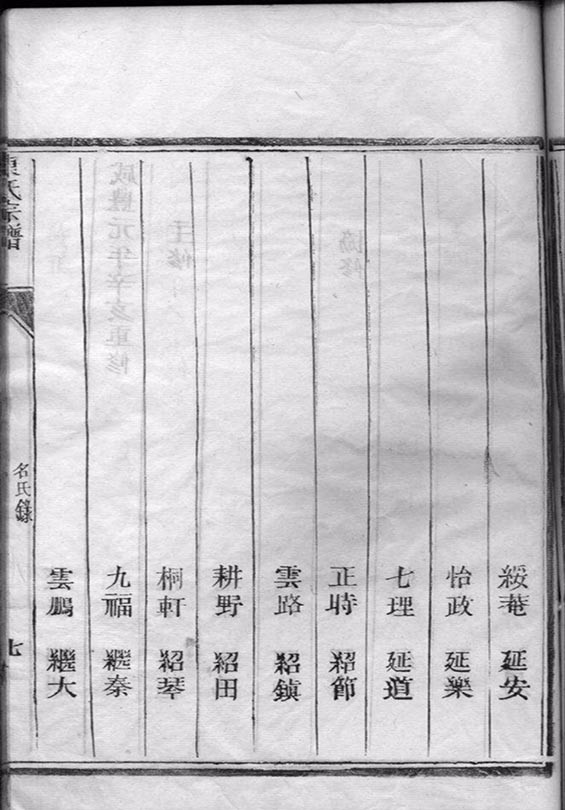 綏菴 延安
怡政 延樂
七理 延道
正時 紹節
雲路 紹鎮
耕野 紹田
桐軒 紹琴
九福 繼秦
雲鵬 繼大
氏宗譜
名氏錄
七
咸豐元年辛亥重修
主修
協修